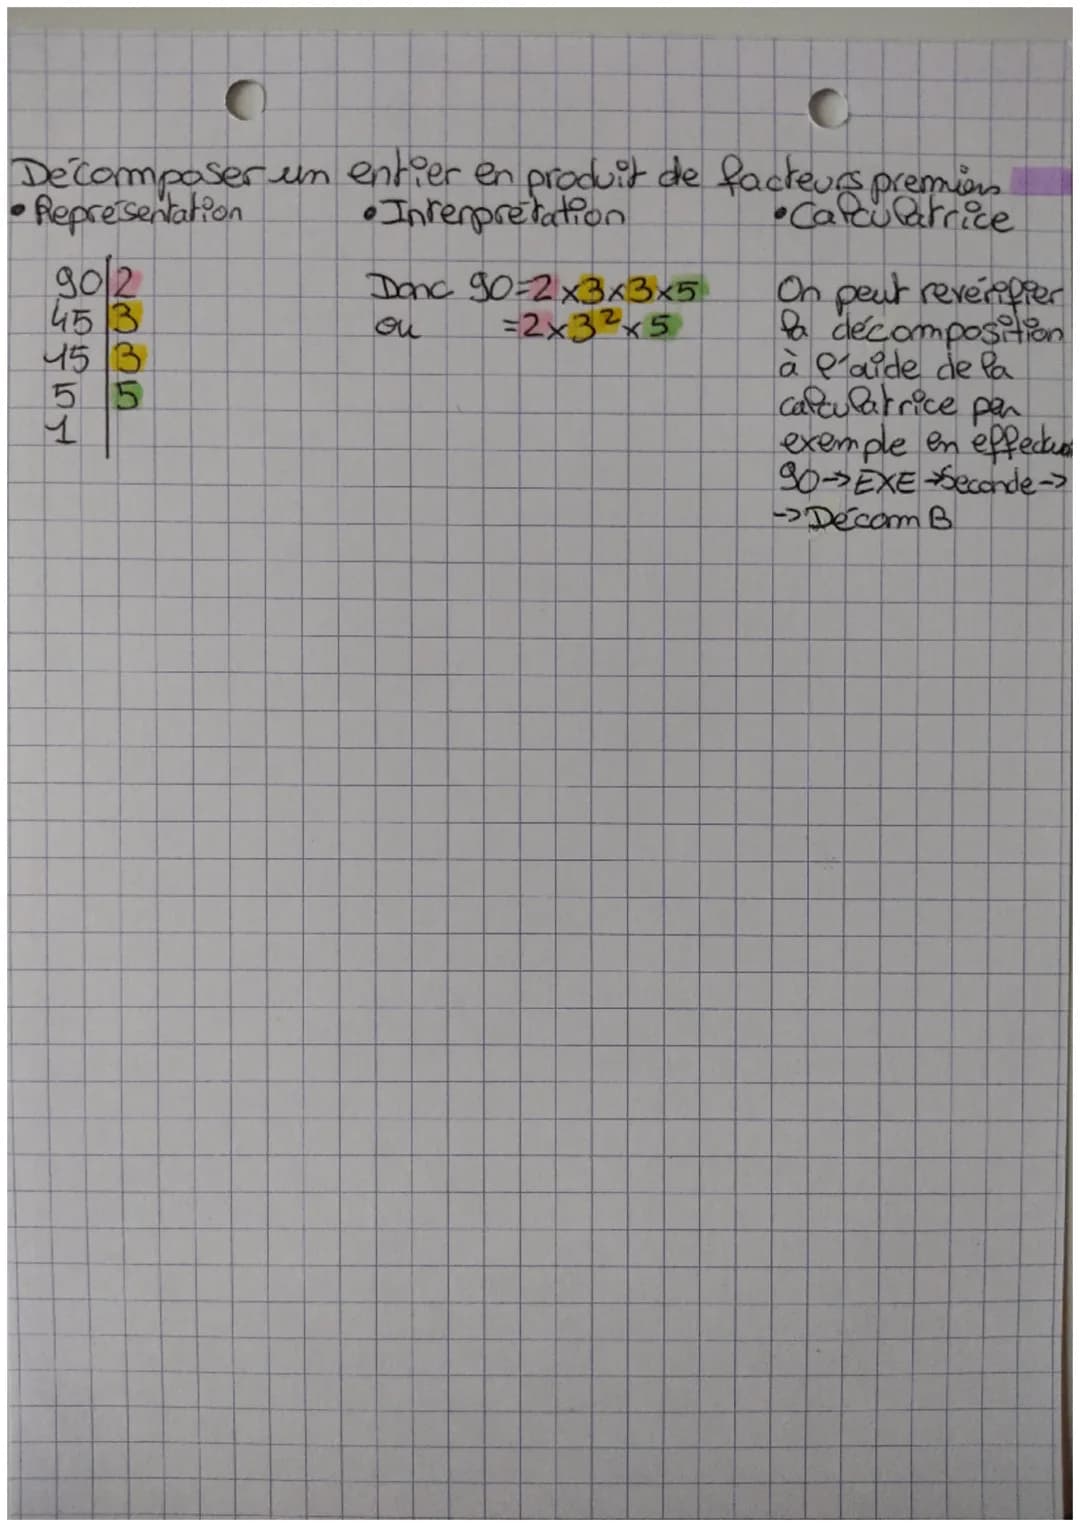 Décomposer un entier en produit de facteurs premiers
• Représentation
90|2
45|3
15|3
5|5
1|
• Interprétation
Donc 90=2×3×3×5
ou =2×3²×5
• Calculatrice
On peut revérifier
la décomposition
à l'aide de la
calculatrice par
exemple en effectua
90->EXE->Seconde->
->Décomp